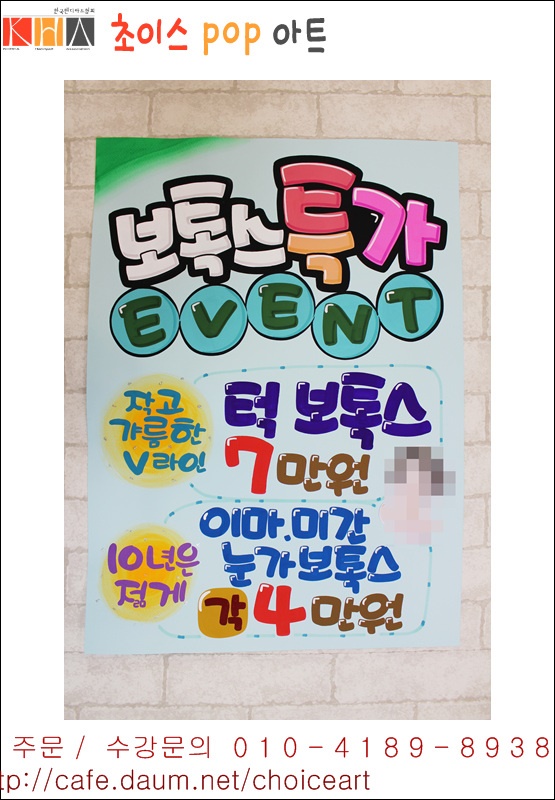 한국핸디아트협회
KHA
초이스 pop 아트
보톡스특가
EVENT
작고
갸름한
V라인
턱 보톡스
7만원
10년은
젊게
이마.미간
눈가보톡스
각 4만원
주문 / 수강문의 010-4189-8938
tp://cafe.daum.net/choiceart